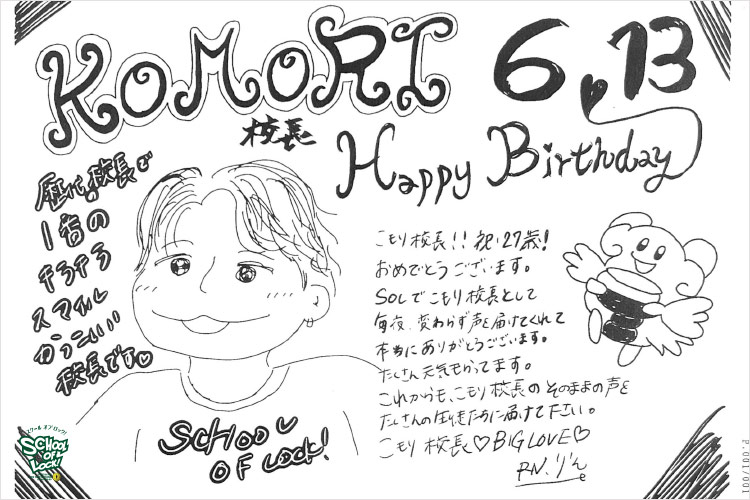 KOMORI
校長
6.13
Happy Birthday
歴代校長で
1番の
キラキラ
スマイル
かっこいい
校長です♡
こもり校長!!祝・27歳!
おめでとうございます。
SOLでこもり校長として
毎夜、変わらず声を届けてくれて
本当にありがとうございます。
たくさん元気もらってます。
これからも、こもり校長のそのままの声を
たくさんの生徒たちに届けて下さい。
こもり校長♡BIG LOVE♡
RN.りんe
SCHOOL
OF LOCK!
スクールオブロック!
SCHOOL
OF
LOCK!
P.001/001